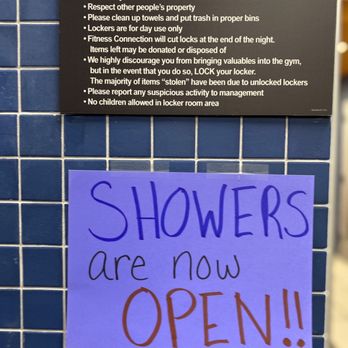 • Respect other people's property
• Please clean up towels and put trash in proper bins
• Lockers are for day use only
• Fitness Connection will cut locks at the end of the night.
Items left may be donated or disposed of
• We highly discourage you from bringing valuables into the gym,
but in the event that you do so, LOCK your locker.
The majority of items "stolen" have been due to unlocked lockers
• Please report any suspicious activity to management
• No children allowed in locker room area
SHOWERS
are now
OPEN!!